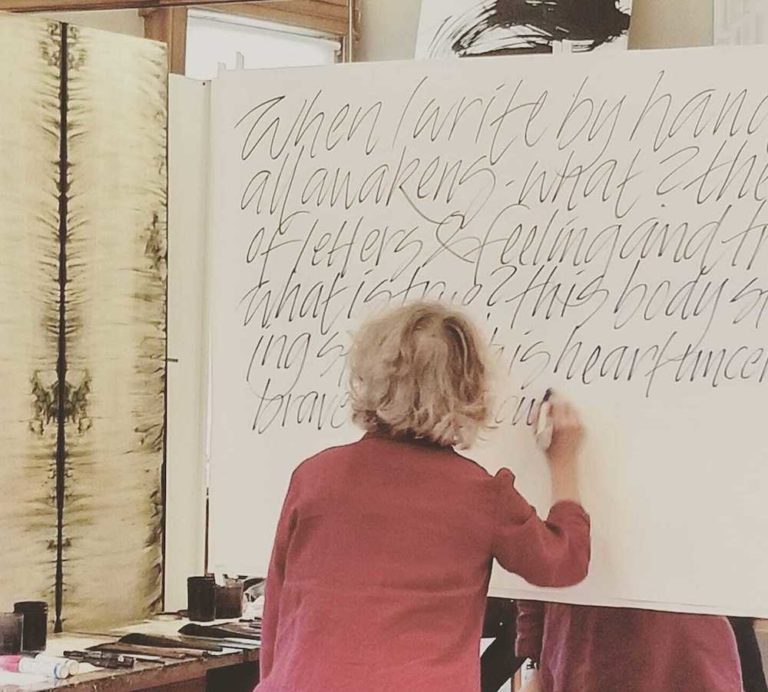 When I write by hand
all awakens - what? the
of letters & feeling and tr
what is true? this body s
ing s his heart uncer
brave